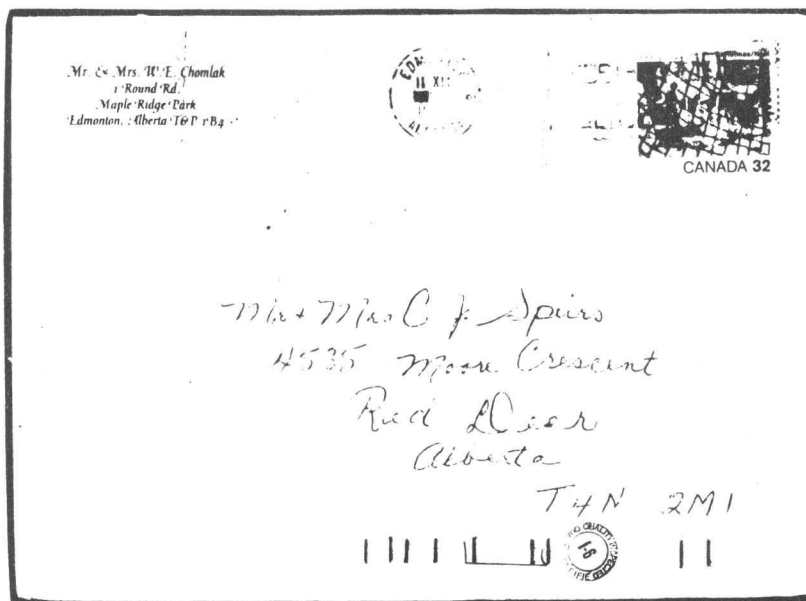 Mr. & Mrs. W. E. Chomlak
1 Round Rd.
Maple Ridge Park
Edmonton, Alberta T6P 1B4
EDM
11 XII
CANADA 32
Mr + Mrs C J. Spiro
4535 Moore Crescent
Red Deer
Alberta
T4N 2M1
QUALITY INSPECTED
1-6